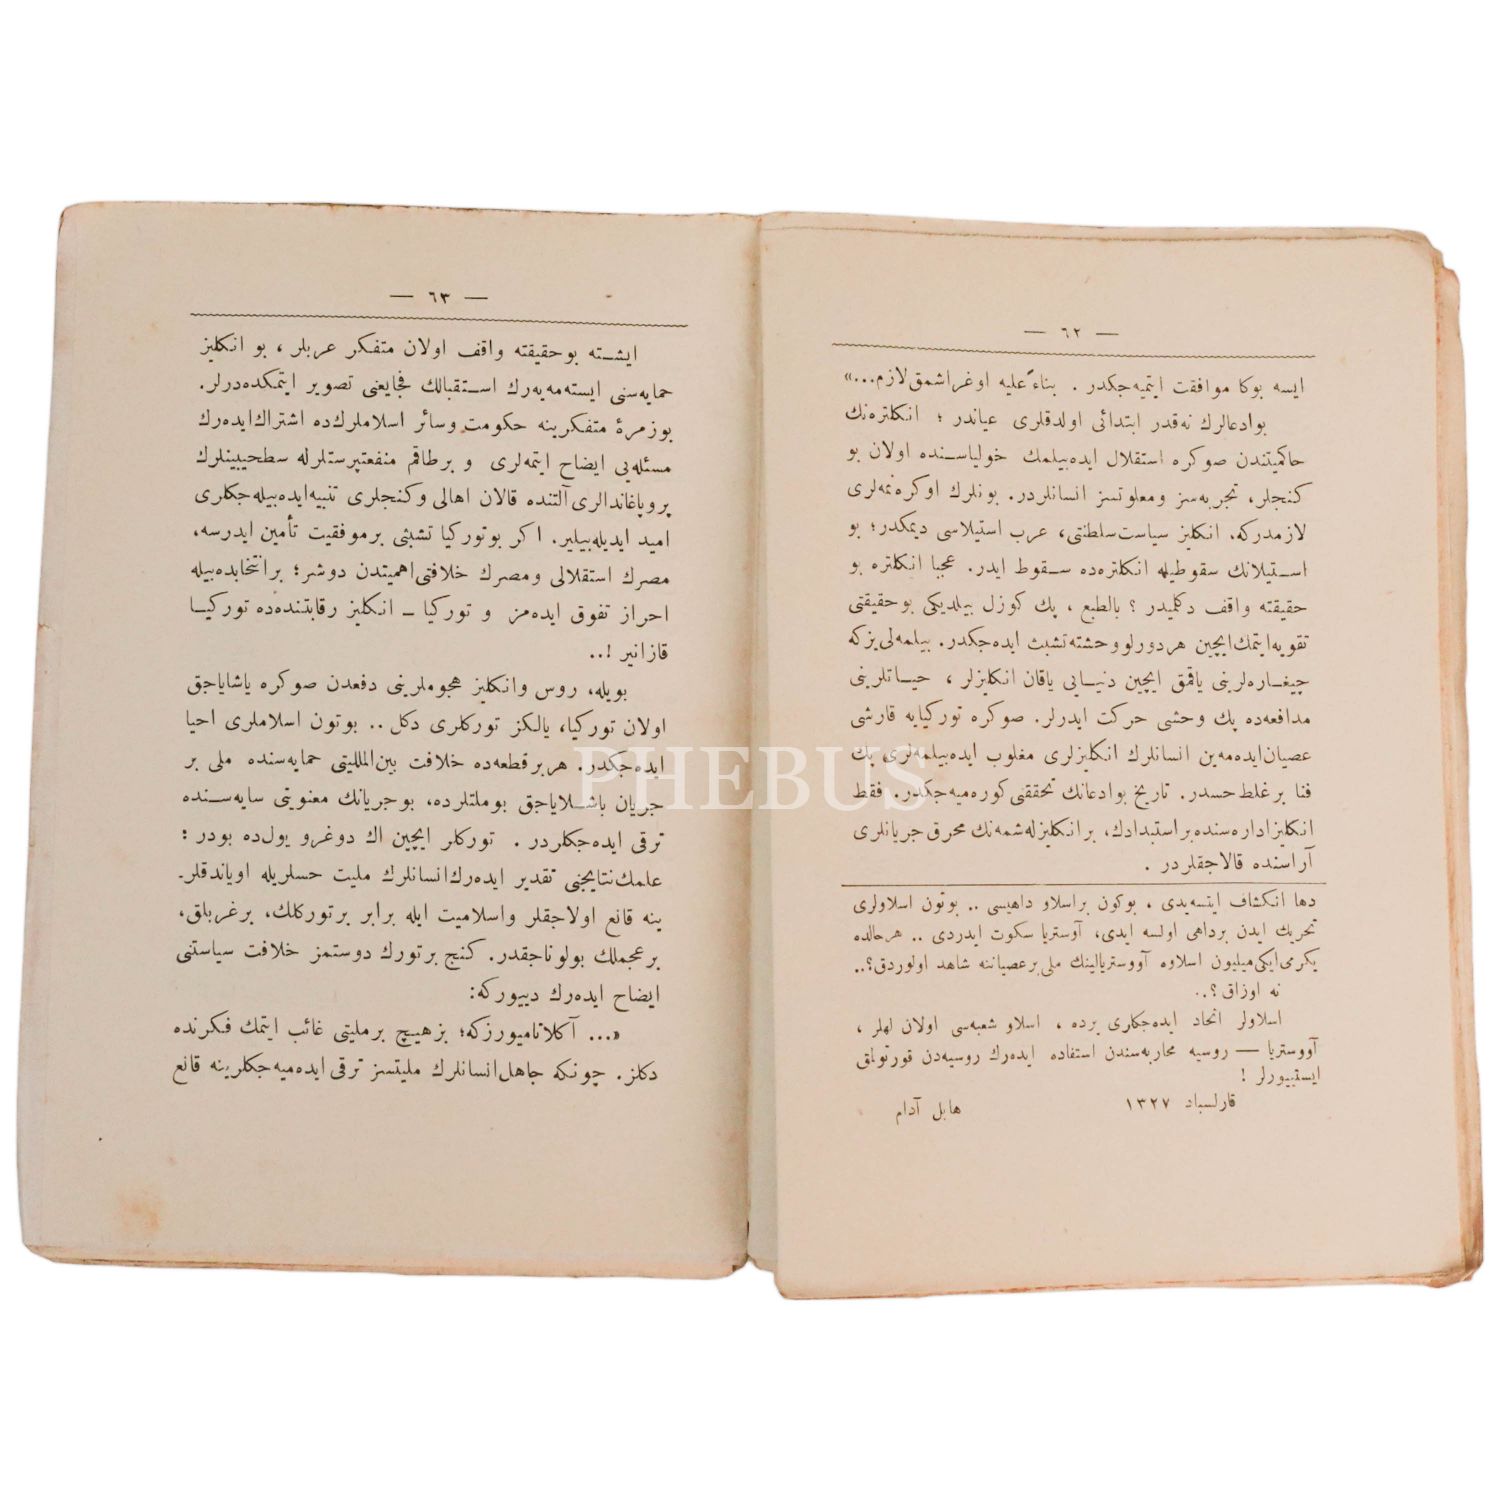 — ٦٢ —
ايسه بوكا موافقت ايتميه‌جكدر . بناءً عليه اوغراشمق لازم...»
بوادعالرك نه‌قدر ابتدائى اولدقلرى عياندر ؛ انكلتره‌نك
حاكميتندن صوكره استقلال ايده‌بيلمك خولياسنده اولان بو
كنجلر، تجربه‌سز ومعلوتسز انسانلردر. بونلرك اوكره‌نمه‌لرى
لازمدركه، انكليز سياست سلطنتى، عرب استيلاسى ديمكدر؛ بو
استيلانك سقوطيله انكلتره‌ده سقوط ايدر. عجبا انكلتره بو
حقيقته واقف دكلميدر ؟ بالطبع ، پك كوزل بيلديكى بوحقيقتى
تقويه‌ايتمك‌ايچين هردورلووحشته‌تشبث ايده‌جكدر. بيلمه‌لى‌يزكه
چيغاره‌لرينى ياقمق ايچين دنيايى ياقان انكليزلر ، حياتلرينى
مدافعه‌ده پك وحشى حركت ايدرلر. صوكره توركيايه قارشى
عصيان‌ايده‌مه‌ين انسانلرك انكليزلرى مغلوب ايده‌بيلمه‌لرى پك
فنا بر غلط حسدر. تاريخ بوادعانك تحققنى كوره‌ميه‌جكدر. فقط
انكليزاداره‌سنده براستبدادك، برانكليزله‌شمه‌نك محرق جريانلرى
آراسنده قالاجقلردر .
دها انكشاف ايتسه‌يدى ، بوكون براسلاو داهيسى .. بوتون اسلاولرى
تحريك ايدن برداهى اولسه ايدى، آوستريا سكوت ايدردى .. هرحالده
يكرمى‌ايكى‌ميليون اسلاوه آووستريالينك ملى‌برعصياننه شاهد اولوردق؟..
نه اوزاق؟..
اسلاولر اتحاد ايده‌جكلرى يرده ، اسلاو شعبه‌سى اولان لهلر ،
آووستريا — روسيه محاربه‌سندن استفاده ايده‌رك روسيه‌دن قورتولمق
ايستييورلر !
قارلسباد ١٣٢٧ هابل آدام
— ٦٣ —
ايشته بوحقيقته واقف اولان متفكر عربلر ، بو انكليز
حمايه‌سنى ايسته‌مه‌يه‌رك استقبالك فجايعنى تصوير ايتمكده‌درلر.
بوزمرۀ متفكرينه حكومت وسائر اسلاملرك‌ده اشتراك‌ايده‌رك
مسئله‌يى ايضاح ايتمه‌لرى و برطاقم منفعتپرستلرله سطحيبينلرك
پروپاغاندالرى آلتنده قالان اهالى وكنجلرى تنبيه‌ايده‌بيله‌جكلرى
اميد ايديله‌بيلير. اكر بوتوركيا تشبثى برموفقيت تأمين ايدرسه،
مصرك استقلالى ومصرك خلافتى‌اهميتدن دوشر؛ برانتخابده‌بيله
احراز تفوق ايده‌مز و توركيا ـ انكليز رقابتنده‌ده توركيا
قازانير !..
بويله، روس وانكليز هجوملرينى دفعدن صوكره ياشاياجق
اولان توركيا، يالكز توركلرى دكل .. بوتون اسلاملرى احيا
ايده‌جكدر. هربرقطعه‌ده خلافت بين‌المللیتى حمايه‌سنده ملى بر
جريان باشلاياجق بوملتلرده، بوجريانك معنويتى سايه‌سنده
ترقى ايده‌جكلردر . توركلر ايچين اك دوغرو يول‌ده بودر :
علمك‌نتايجنى تقدير ايده‌رك‌انسانلرك مليت حسلريله اوياندقلر-
ينه قانع اولاجقلر واسلاميت ايله برابر برتوركلك، برعربلق،
برعجملك بولوناجقدر. كنج برتورك دوستمز خلافت سياستنى
ايضاح ايده‌رك دييوركه:
«... آكلاتاميورزكه؛ بزهيچ برمليتى غائب ايتمك فكرنده
دكلز. چونكه جاهل‌انسانلرك مليتسز ترقى ايده‌ميه‌جكلرينه قانع
PHEBUS